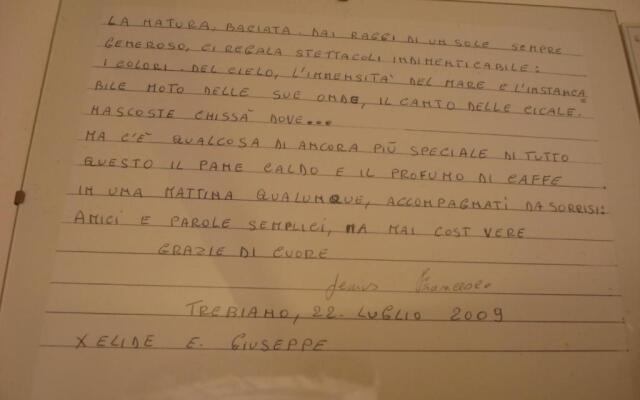 LA NATURA, BACIATA. DAI RAGGI DI UN SOLE SEMPRE
GENEROSO, CI REGALA STETTACOLI INDIMENTICABILE:
I COLORI. DEL CIELO, L'IMMENSITA' DEL MARE E L'INSTANCA=
BILE MOTO DELLE SUE ONDE, IL CANTO DELLE CICALE.
NASCOSTE CHISSÀ DOVE...
MA C'È QUALCOSA DI ANCORA PIÙ SPECIALE DI TUTTO
QUESTO IL PANE CALDO E IL PROFUMO DI CAFFE
IN UNA MATTINA QUALUNQUE, ACCOMPAGNATI DA SORRISI:
AMICI E PAROLE SEMPLICI, MA MAI COSÌ VERE
GRAZIE DI CUORE
Francesco
TREBIANO, 22. LUGLIO 2009
X ELIDE E. GIUSEPPE